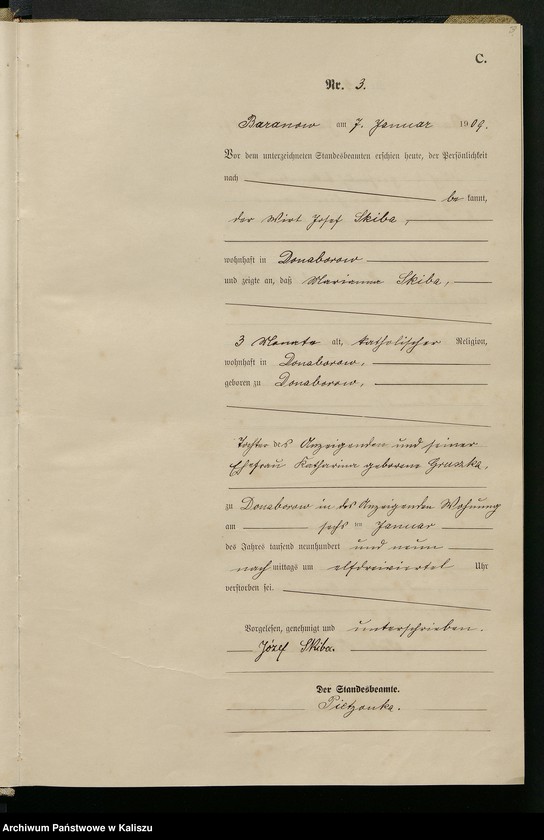 C.
Nr. 3.
Baranow am 7. Januar 1909.
Vor dem unterzeichneten Standesbeamten erschien heute, der Persönlichkeit
nach
be kannt,
der Wirt Josef Skiba,
wohnhaft in Donaborow
und zeigte an, daß Marianna Skiba,
3 Monate alt, katholischer Religion,
wohnhaft in Donaborow,
geboren zu Donaborow,
Tochter des Anzeigenden und seiner
Ehefrau Katharina geborene Gruszka,
zu Donaborow in des Anzeigenden Wohnung
am sechs ten Januar
des Jahres tausend neunhundert und neun
nach mittags um elfdreiviertel Uhr
verstorben sei.
Vorgelesen, genehmigt und unterschrieben.
Józef Skiba.
Der Standesbeamte.
Pietzonka.
Archiwum Państwowe w Kaliszu